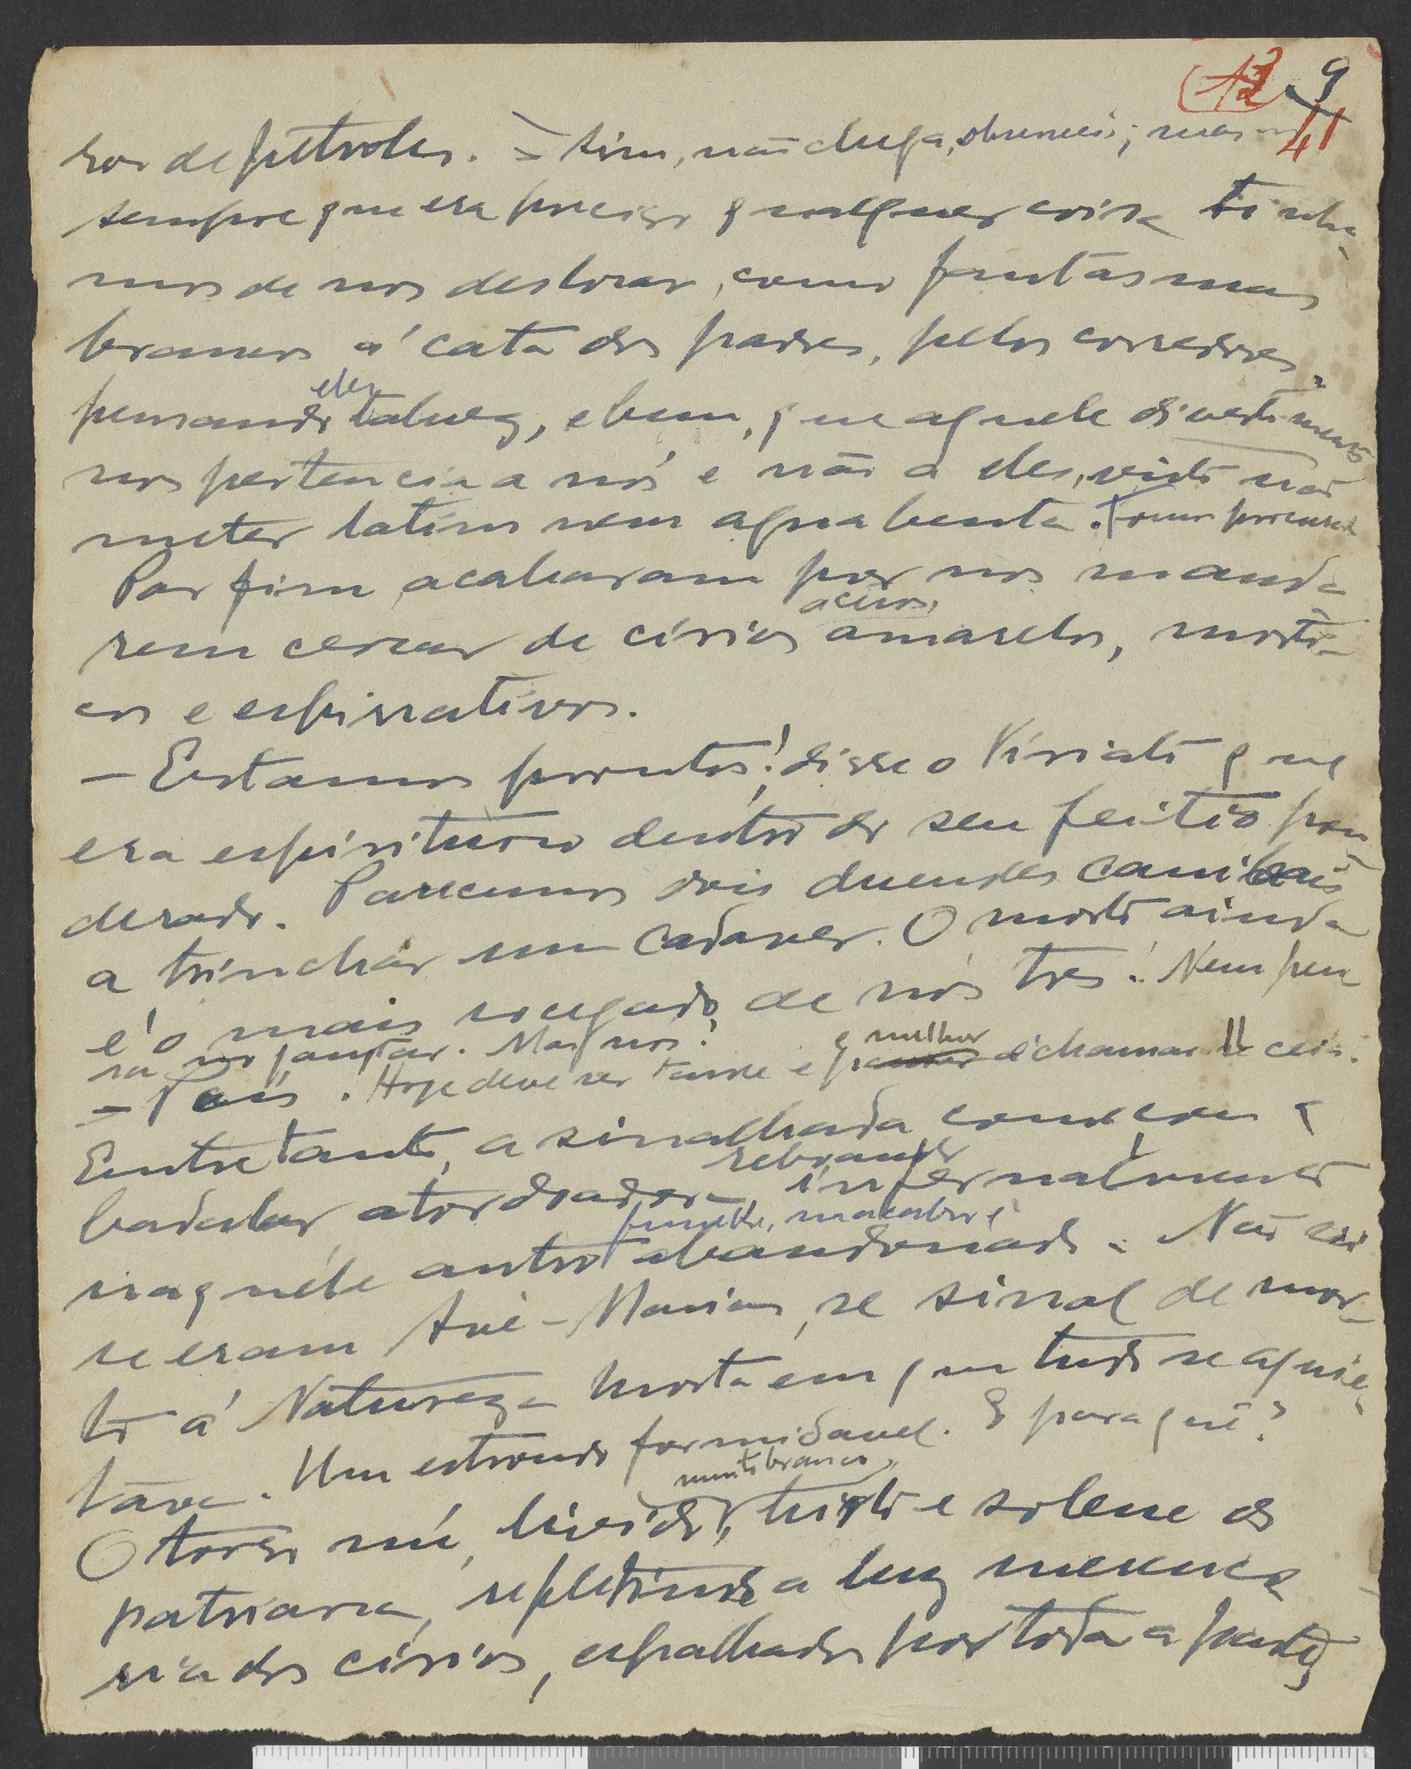 12 9
41
ros de petroleo. — Sim, não chega, observei; mas
sempre que era preciso qualquer coisa tinha-
mos de nos deslocar, como fantasmas
brancos á cata dos padres, pelos corredores,
pensando eles talvez, e bem, que aquele divertimento
nos pertencia a nós e não a eles, visto não
meter latim nem agua benta.
Por fim acabaram por nos manda-
rem cercar de círios acesos, amarelos, morti-
ços e espirrativos.
— Estamos prontos! disse o Viriato que
era espirituoso dentro do seu feitio pon-
derado. Parecemos dois duendes canibais
a trinchar um cadaver. O morto ainda
é o mais socegado de nós tres! Nem pen-
sa no jantar. Mas nós?
— Pois. Hoje deve ser tarde e o melhor é chamar-lhe ceia.
Entretanto, a sinalhada começou a
badalar atordoadora, rebrando infernalmente
naquéle antro funebre, macabro e abandonado. Não sei
se eram Avè-Marias, se sinal de mor-
to á Natureza morta em que tudo se aquie-
tava. Um estrondo formidavel. E para quê?
O torso nú, livido, muito branco, hirto e solene do
patriarca, reflectindo a luz
ria dos círios, espalhados por toda a parte,